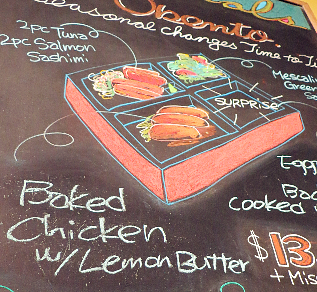 Obento
Seasonal changes Time to
2pc Tuna
2pc Salmon
Sashimi
Mescalin
Green
SURPRISE
Egg
Baked
Chicken
w/ Lemon Butter
cooked
$13
+ Mis